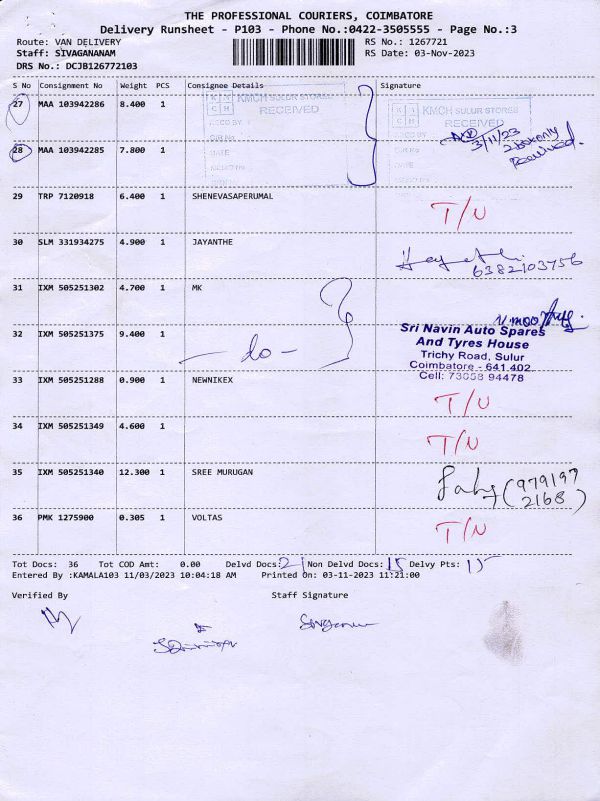 THE PROFESSIONAL COURIERS, COIMBATORE
Delivery Runsheet - P103 - Phone No.:0422-3505555 - Page No.:3
Route: VAN DELIVERY RS No.: 1267721
Staff: SIVAGANANAM RS Date: 03-Nov-2023
DRS No.: DCJB126772103
S No Consignment No Weight PCS Consignee Details Signature
27 MAA 103942286 8.400 1
KMCH SULUR STORES
RECEIVED
KMCH SULUR STORES
RECEIVED
3/11/23
Received
28 MAA 103942285 7.800 1
29 TRP 7120918 6.400 1 SHENEVASAPERUMAL T/U
30 SLM 331934275 4.900 1 JAYANTHE
6382103756
31 IXM 505251302 4.700 1 MK
32 IXM 505251375 9.400 1 - do -
Sri Navin Auto Spares
And Tyres House
Trichy Road, Sulur
Coimbatore - 641 402
Cell: 73058 94478
33 IXM 505251288 0.900 1 NEWNIKEX T/U
34 IXM 505251349 4.600 1 T/U
35 IXM 505251340 12.300 1 SREE MURUGAN (979197
2168)
36 PMK 1275900 0.305 1 VOLTAS T/U
Tot Docs: 36 Tot COD Amt: 0.00 Delvd Docs: 21 Non Delvd Docs: 15 Delvy Pts: 15
Entered By :KAMALA103 11/03/2023 10:04:18 AM Printed On: 03-11-2023 11:21:00
Verified By Staff Signature